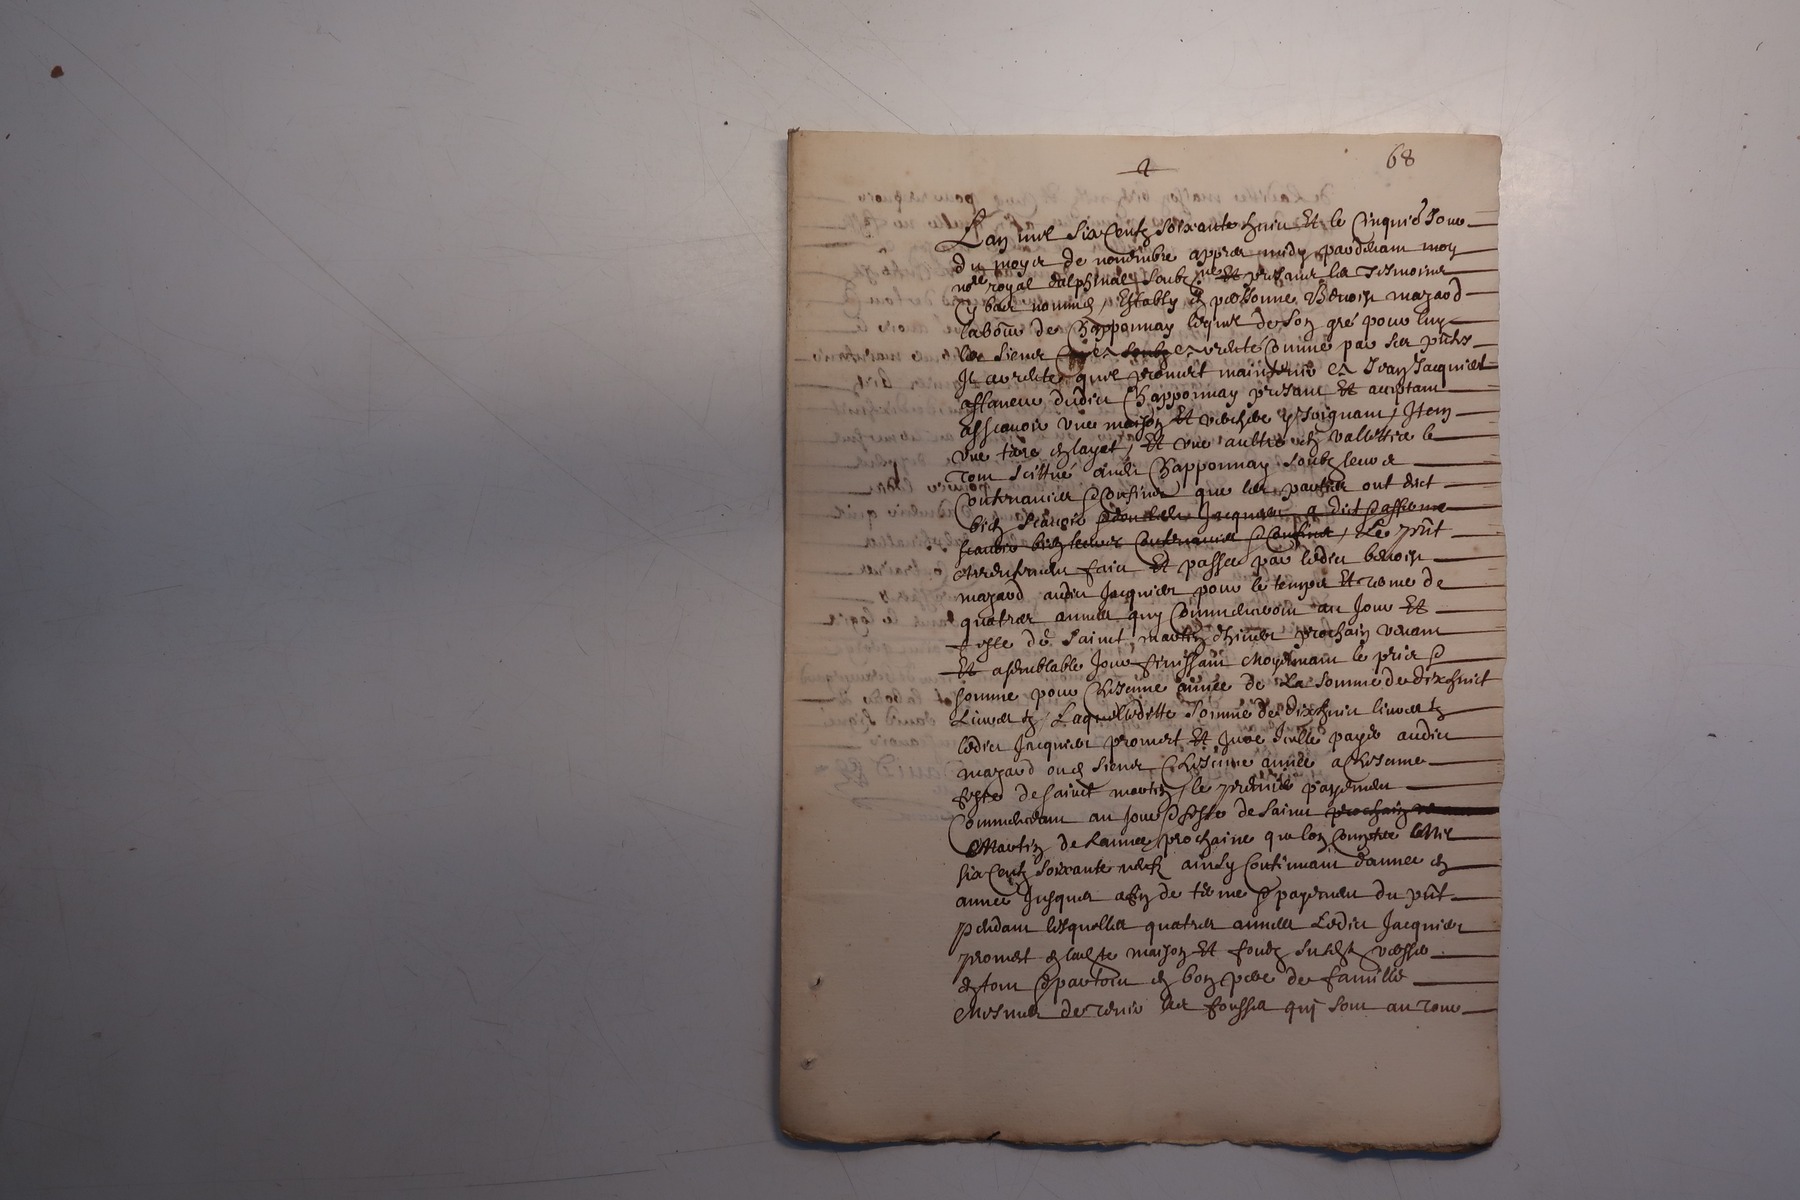 68
Lan mil six centz soixante huict Et le cinquie Jour
du moys de novembre appres midy pardevant moy
nore royal dalphinal soubzne Et presant les tesmoins
cy bas nommes, Estably en personne Benoist mazard
labour de Chapponnay lequel de son gré pour luy
les siens et arrente comme par ses pntes
Il arrente quil promect maintenir et Jean Jacquiet
affaneur dudict Chapponnay presant Et acceptant
assçavoir une maison Et verchere y Joignant, Item
une terre en layet, Et une aultre en vallettire le
tout scittué audit Chapponnay soubz leurs
contenances & confins que les parties ont dict
bien scavoir & dont ledit Jacquier a dict & affirme
scavoir bien leurs contenances & confins, Le pnt
arrentement faict Et passer par ledict benoist
mazard audict Jacquier pour le temps Et terme de
quatres annees quy commenceront au Jour Et
feste de Sainct martin dhiver prochain venant
Et a semblable Jour finissant moyennant le pris &
somme pour chescune année de La somme de dixhuict
Livres tz, Laquelle ditte somme de dixhuict livres tz
ledict Jacquier promect Et Jure Icelle payer audict
mazard ou es siens chescune année a chescune
feste de sainct martin, le premier payement
commencant au Jour & feste de Sainct prochain
Martin de lannee prochaine que lon comptera Mil
six centz soixante neuf ainsy continuant dannee en
annee Jusques a fin de terme & payement du pnt
pendant lesquelles quatres annees Ledict Jacquier
promect en laditte maison Et fondz susdit
en tout & partout en bon pere de famille
Mesmes de tenir les fossés qui sont au tour